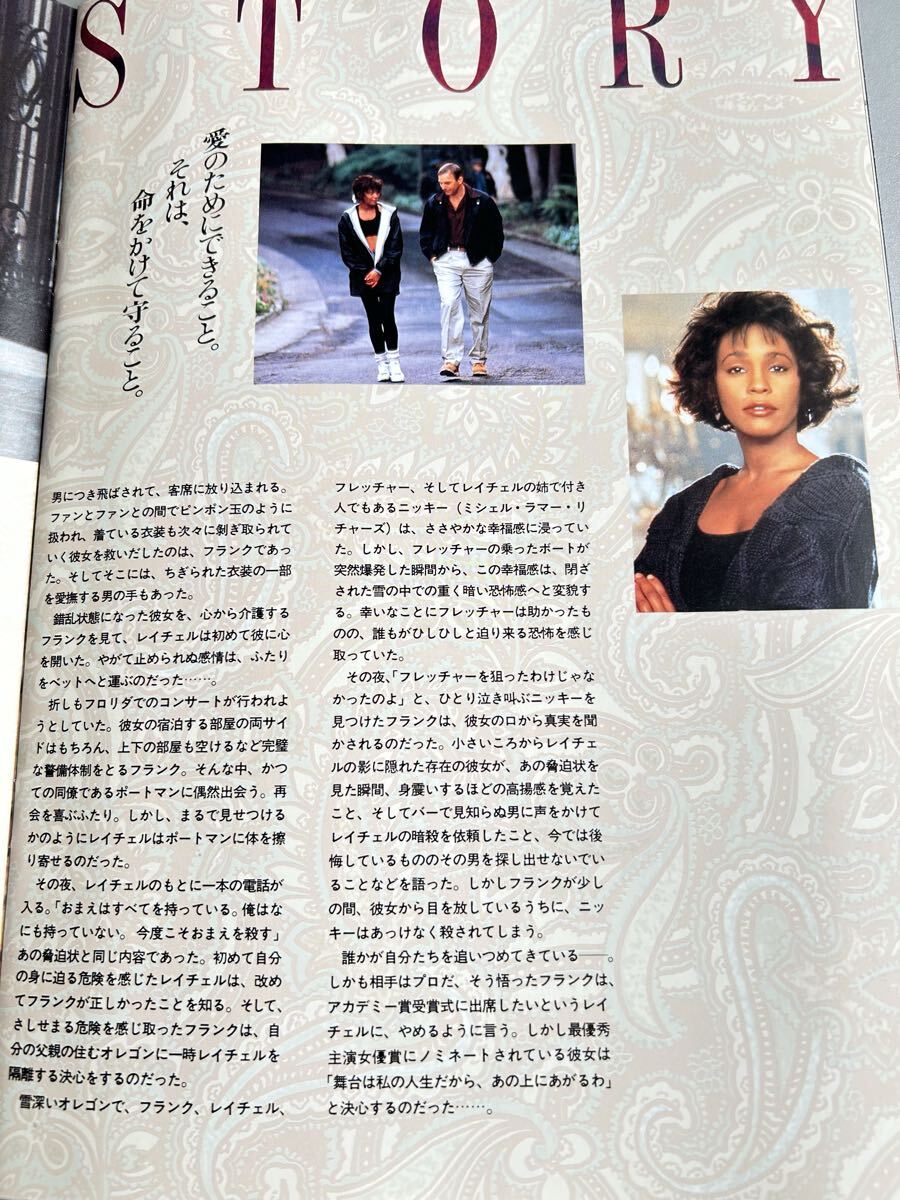 STORY
愛のためにできること。
それは、
命をかけて守ること。
男につき飛ばされて、客席に放り込まれる。
ファンとファンとの間でピンポン玉のように
扱われ、着ている衣装も次々に剝ぎ取られて
いく彼女を救いだしたのは、フランクであっ
た。そしてそこには、ちぎられた衣装の一部
を愛撫する男の手もあった。
錯乱状態になった彼女を、心から介護する
フランクを見て、レイチェルは初めて彼に心
を開いた。やがて止められぬ感情は、ふたり
をベットへと運ぶのだった……。
折しもフロリダでのコンサートが行われよ
うとしていた。彼女の宿泊する部屋の両サイ
ドはもちろん、上下の部屋も空けるなど完璧
な警備体制をとるフランク。そんな中、かつ
ての同僚であるポートマンに偶然出会う。再
会を喜ぶふたり。しかし、まるで見せつける
かのようにレイチェルはポートマンに体を擦
り寄せるのだった。
その夜、レイチェルのもとに一本の電話が
入る。「おまえはすべてを持っている。俺はな
にも持っていない。今度こそおまえを殺す」
あの脅迫状と同じ内容であった。初めて自分
の身に迫る危険を感じたレイチェルは、改め
てフランクが正しかったことを知る。そして、
さしせまる危険を感じ取ったフランクは、自
分の父親の住むオレゴンに一時レイチェルを
隔離する決心をするのだった。
雪深いオレゴンで、フランク、レイチェル、
フレッチャー、そしてレイチェルの姉で付き
人でもあるニッキー（ミシェル・ラマー・リ
チャーズ）は、ささやかな幸福感に浸ってい
た。しかし、フレッチャーの乗ったボートが
突然爆発した瞬間から、この幸福感は、閉ざ
された雪の中での重く暗い恐怖感へと変貌す
る。幸いなことにフレッチャーは助かったも
のの、誰もがひしひしと迫り来る恐怖を感じ
取っていた。
その夜、「フレッチャーを狙ったわけじゃな
かったのよ」と、ひとり泣き叫ぶニッキーを
見つけたフランクは、彼女の口から真実を聞
かされるのだった。小さいころからレイチェ
ルの影に隠れた存在の彼女が、あの脅迫状を
見た瞬間、身震いするほどの高揚感を覚えた
こと、そしてバーで見知らぬ男に声をかけて
レイチェルの暗殺を依頼したこと、今では後
悔しているもののその男を探し出せないでい
ることなどを語った。しかしフランクが少し
の間、彼女から目を放しているうちに、ニッ
キーはあっけなく殺されてしまう。
誰かが自分たちを追いつめてきている──。
しかも相手はプロだ、そう悟ったフランクは、
アカデミー賞受賞式に出席したいというレイ
チェルに、やめるように言う。しかし最優秀
主演女優賞にノミネートされている彼女は
「舞台は私の人生だから、あの上にあがるわ」
と決心するのだった……。